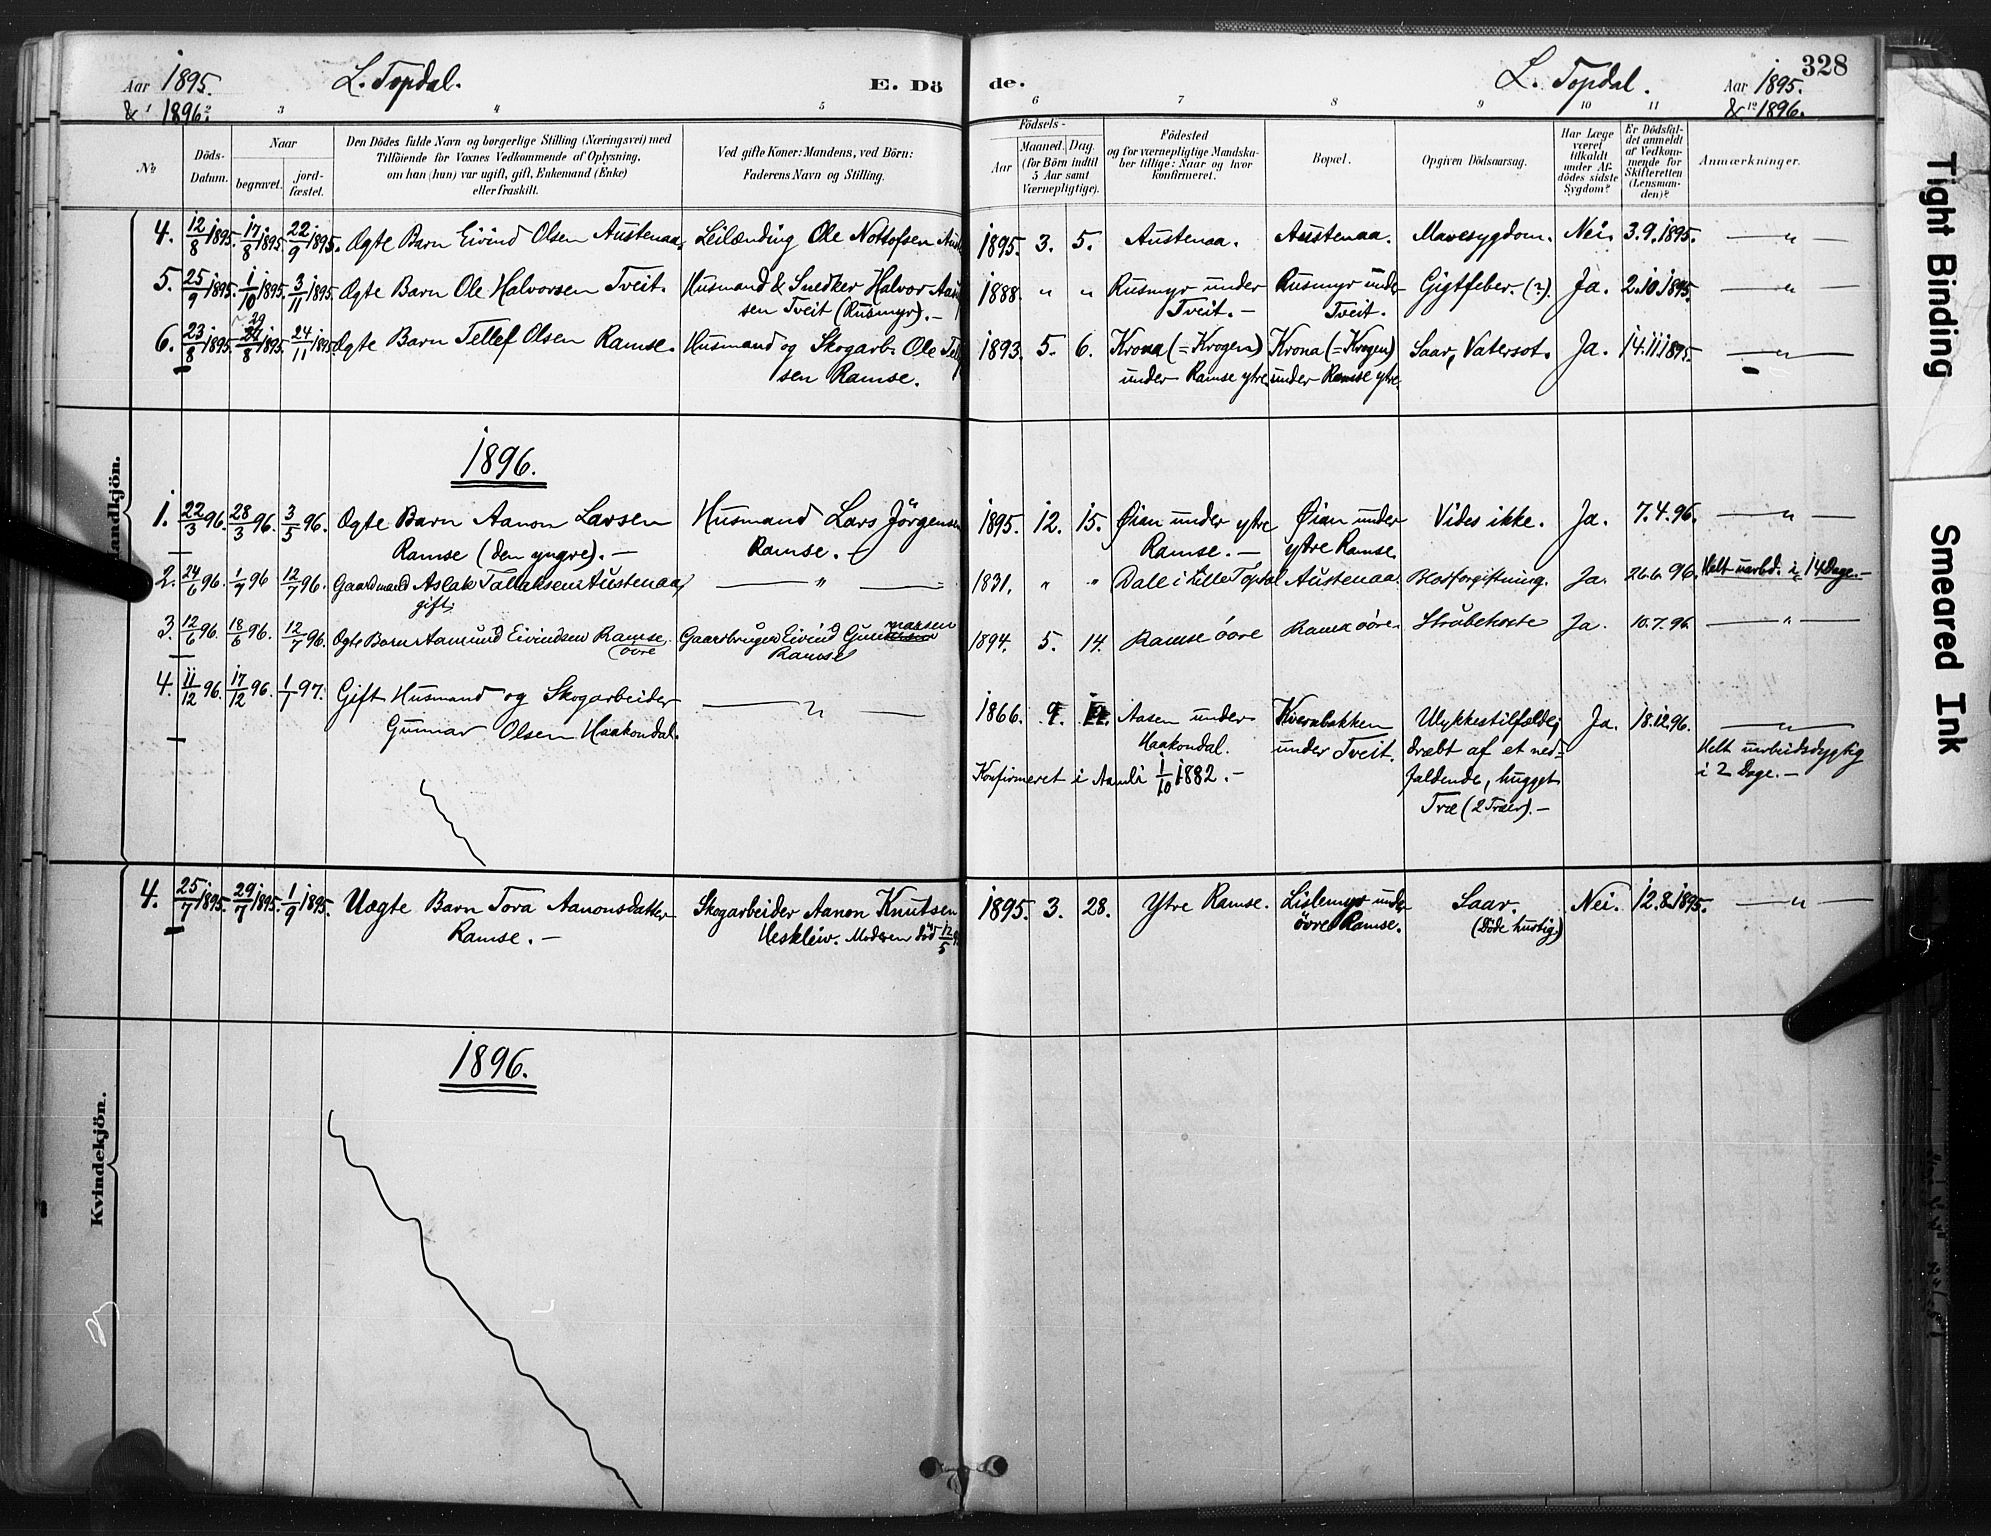 Aar 1895. L. Topdal. E. Dö de. L. Topdal. Aar 1895. 328
& 1896. & 1896.
1 2 3 4 5 6 7 8 9 10 11 12
No
Döds-Datum.
Naar
begravet.
jord-fæstet.
Den Dödes fulde Navn og borgerlige Stilling (Næringsvei) med
Tilföiende for Voxnes Vedkommende af Oplysning,
om han (hun) var ugift, gift, Enkemand (Enke)
eller fraskilt.
Ved gifte Koner: Mandens, ved Börn:
Faderens Navn og Stilling.
Födsels-
Aar
Maaned. Dag.
(for Börn indtil
5 Aar samt
Værnepligtige).
Födested
og for værnepligtige Mandska-
ber tillige: Naar og hvor
konfirmeret.
Bopæl.
Opgiven Dödsaarsag.
Har Læge
været
tilkaldt
under Af-
dödes sidste
Sygdom?
Er Dödsfal-
det anmeldt
af Vedkom-
mende for
Skifteretten
(Lensman-
den)?
Anmærkninger.
Mandkjön.
4. 12/8 1895. 17/8 1895. 22/9 1895. Ægte Barn Eivind Olsen Austenaa. Leilænding Ole Nottofsen 1895. 3. 5. Austenaa. Austenaa. Mavesygdom. Nei. 3.9.1895. — " —
5. 25/9 1895. 1/10 1895. 3/11 1895. Ægte Barn Ole Halvorsen Tveit. Husmand & Snedker Halvor 1888. " " Rusmyr under Rusmyr under Gigtfeber. (?). Ja. 2.10.1895. — " —
sen Tveit (Rusmyr). — Tveit. — Tveit.
29
6. 23/8 1895. 24/8 1895. 24/11 1895. Ægte Barn Tellef Olsen Ramse. Husmand og Skogarb. Ole 1893. 5. 6. Krona (= Krogen) Krona (= Krogen) Saar, Vatersot. Ja. 14.11.1895. — " —
sen Ramse. under Ramse ytre under Ramse ytre.
1896.
1. 22/3 96. 28/3 96. 3/5 96. Ægte Barn Aanon Larsen Husmand Lars Jörgensen 1895. 12. 15. Øian under ytre Øian under Vides ikke. Ja. 7.4.96. — " —
Ramse (den yngre). — Ramse. — Ramse. — ytre Ramse.
2. 24/6 96. 1/7 96 12/7 96. Gaardmand Aslak Tallaksen Austenaa — " — 1831. " " Dale i Lille Topdal Austenaa. Blodforgiftning. Ja. 26.6.96. Helt uarbd. i 14 Dage. —
gift.
3. 12/6 96. 18/6 96. 12/7 96. Ægte Barn Aamund Eivindsen Ramse Gaardbruger Eivind Gunmarsen 1894. 5. 14. Ramse övre Ramse övre. Strubehoste Ja. 10.7.96. — " —
övre Ramse
4. 11/12 96. 17/12 96. 1/1 97. Gift Husmand og Skogarbeider — " — 1866. 9. Aasen under Kvernbakken Ulykkestilfælde; Ja. 18.12.96. — " —
Gunnar Olsen Haakondal. Haakondal. under Tveit. dræbt af et ned- Helt uarbeidsdygtig
Konfirmeret i Aamli 1/10 1882. — faldende, hugget i 2 Dage. —
Træ (2 Træer). —
4. 25/7 1895. 29/7 1895. 1/9 1895. Uægte Barn Tora Aanonsdatter Skogarbeider Aanon Knutsen 1895. 3. 28. Ytre Ramse. Lislemyr under Saar. Nei. 12.8.1895. — " —
Ramse. — Heskleiv. Moderen död 12/5 övre Ramse. (Döde hurtig.)
Kvindekjön.
1896.
Tight Binding
Smeared Ink